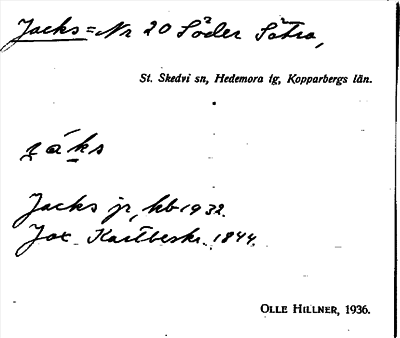 Jacks = Nr 20 Söder Sätra,
St. Skedvi sn, Hedemora tg, Kopparbergs län.
jáks
Jacks jr, kb 1932.
Jax Kartbeskr. 1844.
OLLE HILLNER, 1936.